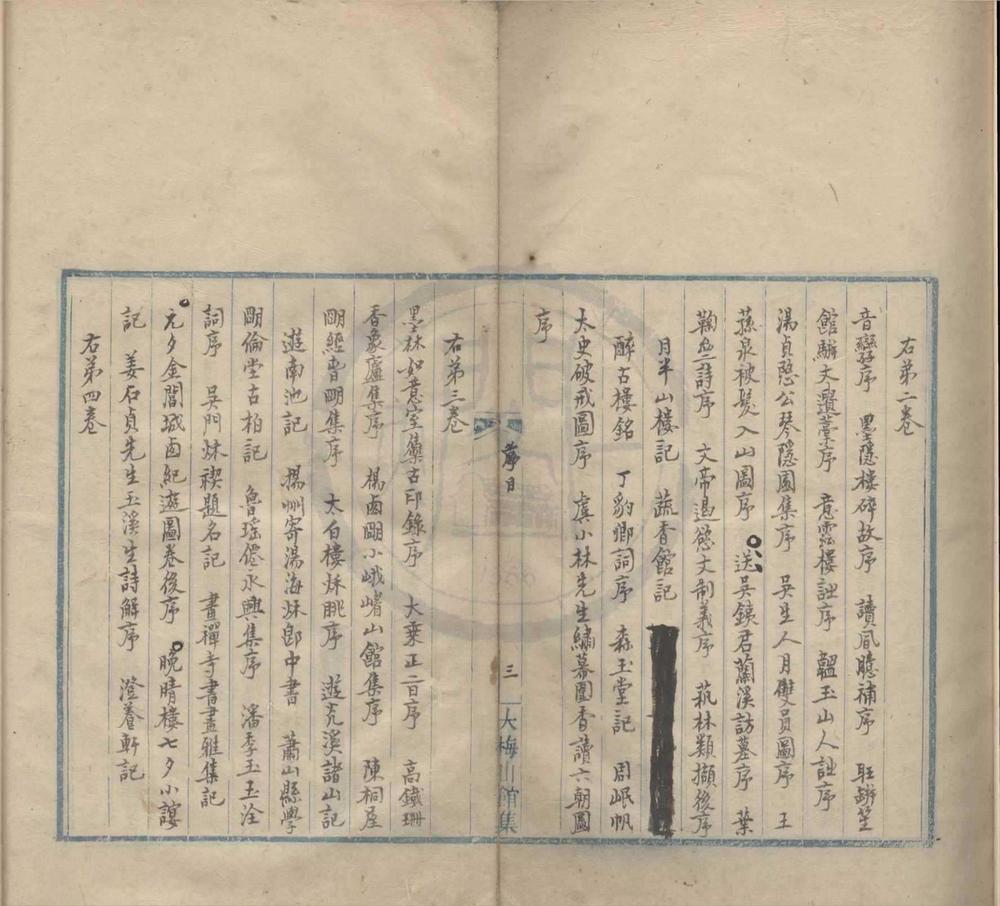 右第二卷
音㜻序　墨隱樓碎故序　讀風臆補序　駢笙
館駢文遺藁序　意雲樓詩序　韞玉山人詩序
湯貞愍公琴隱園集序　吳生人月雙圓圖序　王
蓀泉被髮入山圖序　送吳銕君蘭溪訪墓序　葉
鞠𠙖二詩序　文帝遏慾文制義序　萟林類擷後序
月半山樓記　蔬香館記
醉古樓銘　丁豹卿詞序　森玉堂記　周岷帆
太史破戒圖序　虞小林先生繡幕圍香讀六朝圖
序
序目
三
大梅山館集
右第三卷
墨林如意室集古印錄序　大乗正音序　高鐵珊
香象廬集序　楊卤眀小峨嵋山館集序　陳桐屋
眀經晋眀集序　太白樓秌眺序　遊㳘溪諸山記
遊南池記　揚州寄湯海秌郎中書　蕭山縣學
眀倫堂古柏記　魯瑤僊永興集序　潘季玉玉洤
詞序　吳門秌禊題名記　畫禪寺書畫雅集記
元夕金閶城卤紀遊圖卷後序　晚晴樓七夕小䜩
記　姜石貞先生玉溪生詩解序　澄養軒記
右第四卷